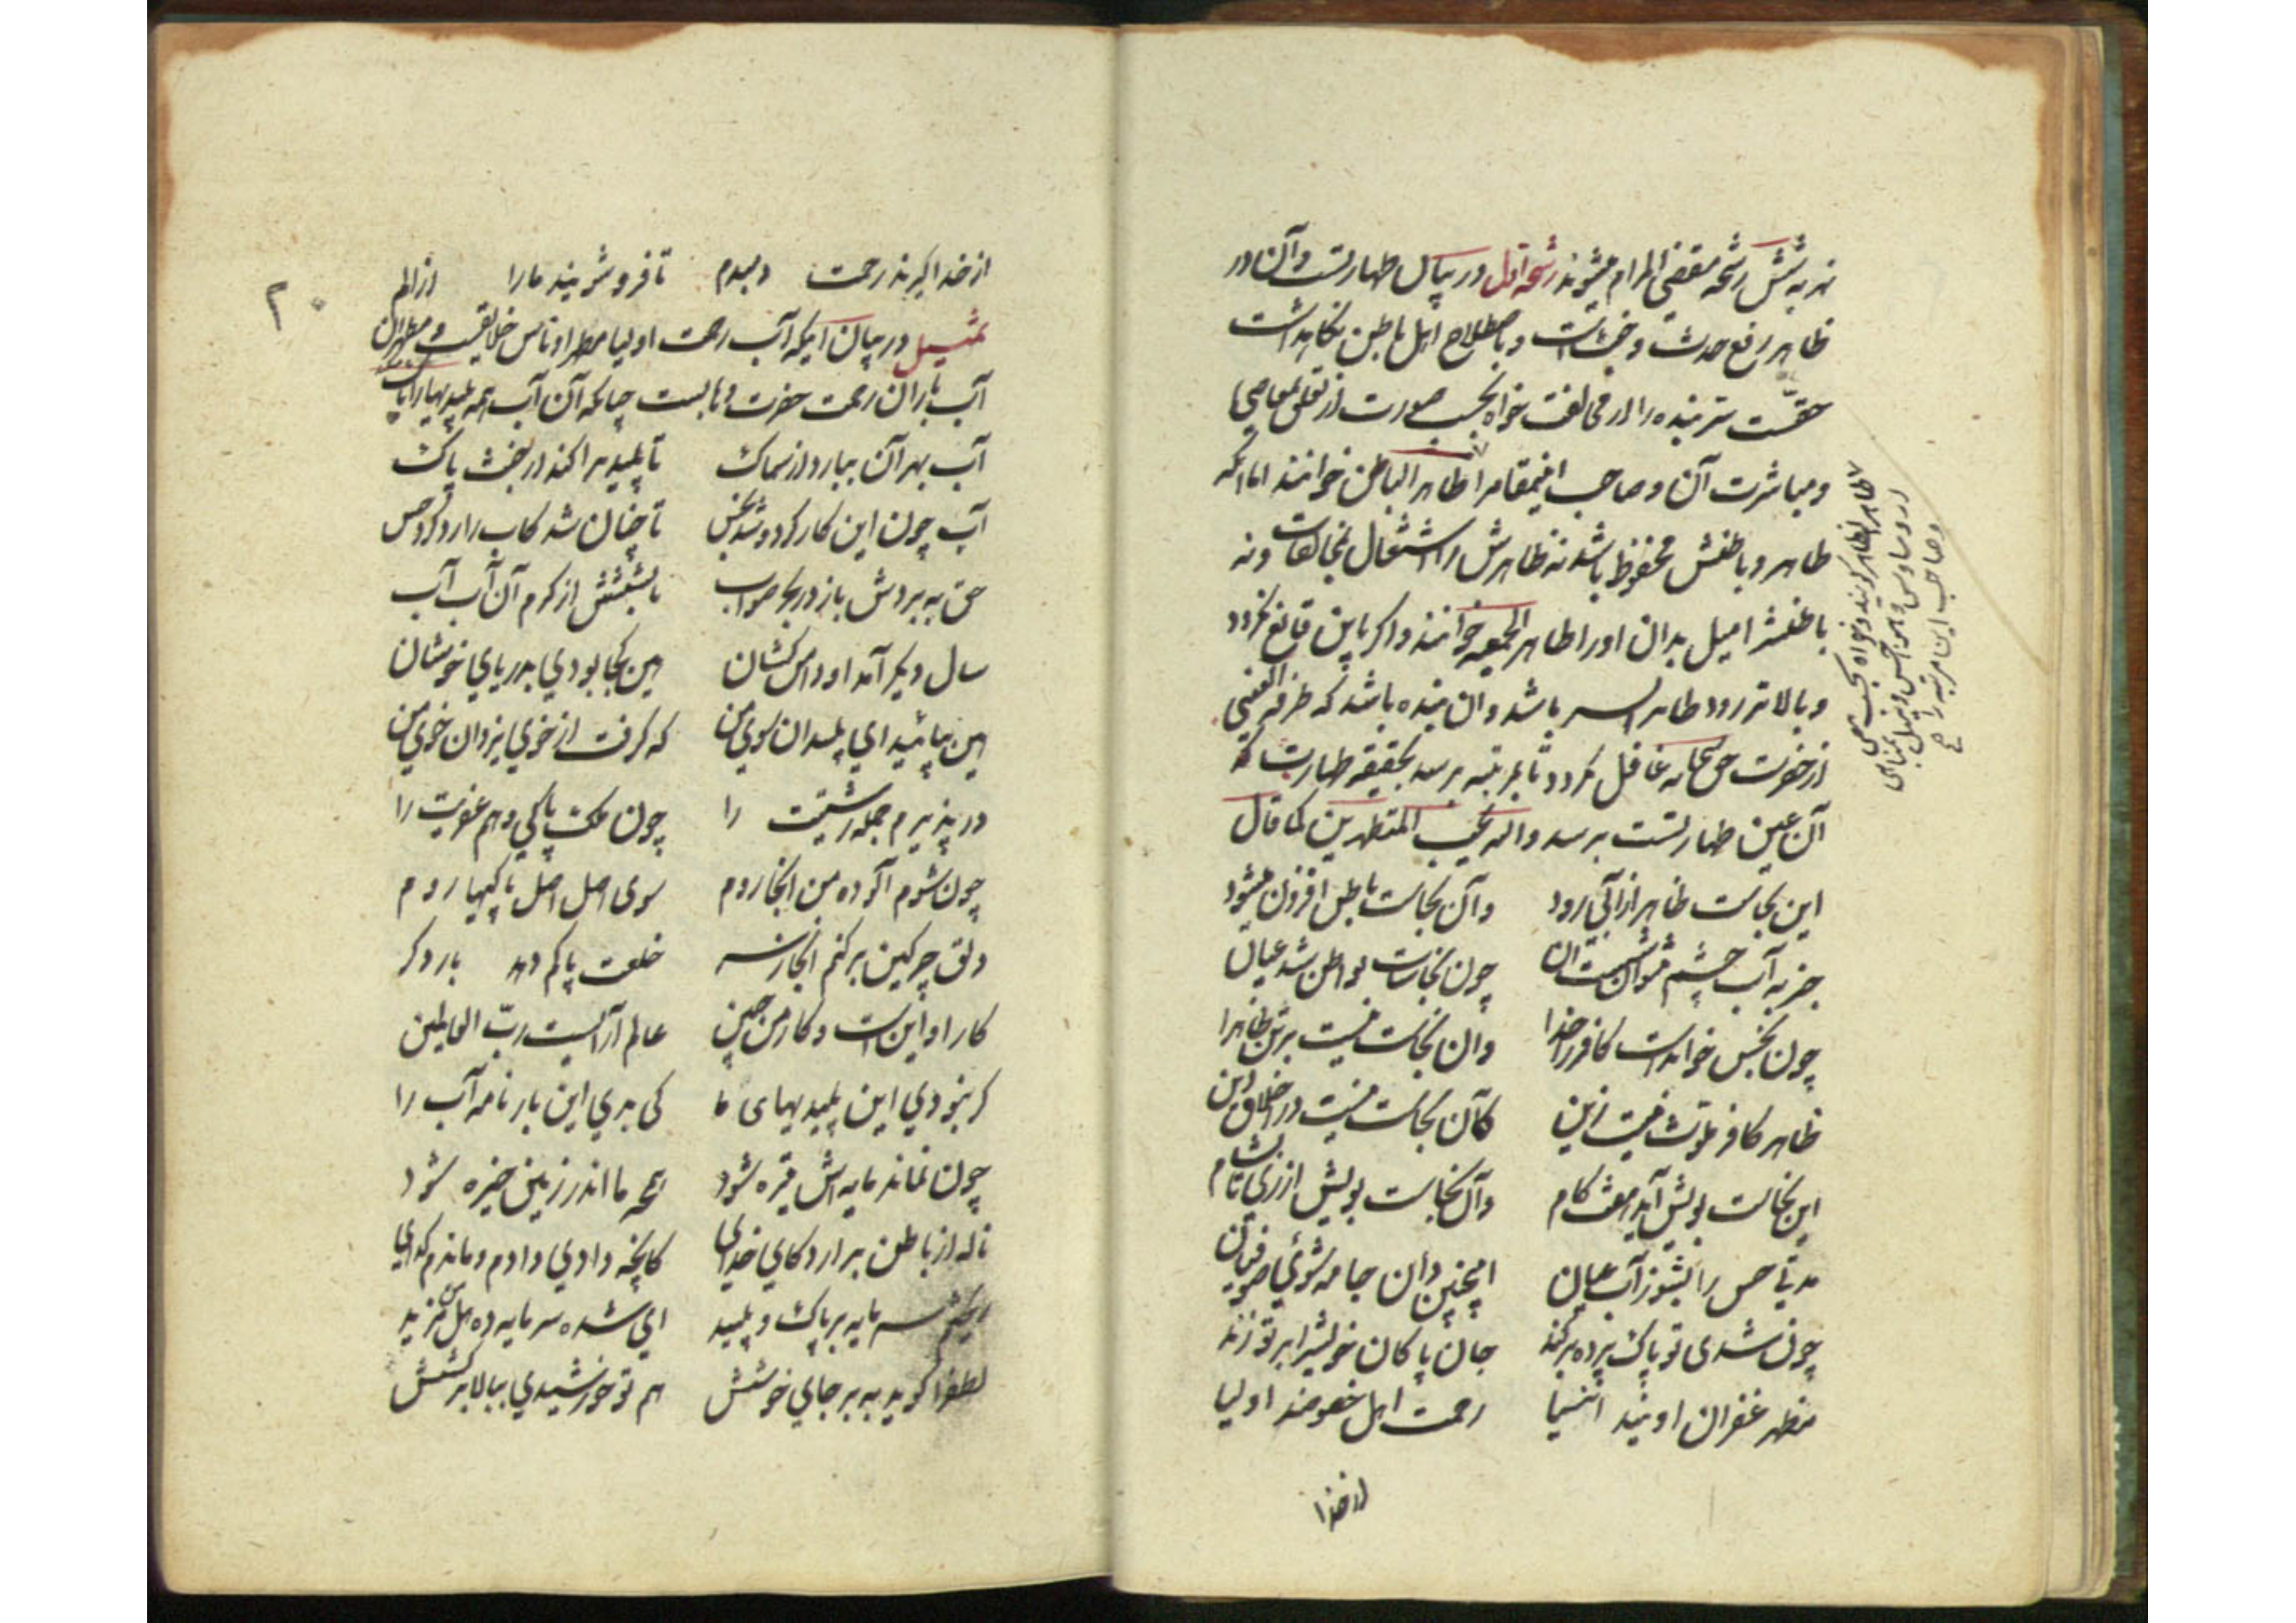 نهر به شش رشحه مقضی المرام میشوند رشحه اول در بیان طهارتست و آن در
ظاهر رفع حدث و خبث است و باصطلاح اهل باطن نگاهداشت
حقست سر بنده را از مخالفت خواه بحسب صورت از تعلق بمعاصی
و مباشرت آن و صاحب اینمقام را طاهر الباطن خوانند اما آنکه
طاهر و باطنش محفوظ باشد نه ظاهرش را اشتغال بمخالفات و نه
باطنش را میل بدان او را طاهر الجمیع خوانند و اگر باین قانع نگردد
و بالاتر رود طاهر السر باشد و آن بنده باشد که طرفة العینی
از حضرت حق سبحانه غافل نگردد تا بمرتبه برسد بحقیقه طهارت که
آن عین طهارتست برسد والله یحب المتطهرین کما قال
این نجاست ظاهر از آبی رود    و آن نجاست باطن افزون میشود
جز به آب چشم نتوان شستن آن    چون نجاسات بواطن شد عیان
چون نجس خوانده است کافر را خدا    وان نجاست نیست بر تن ظاهرا
ظاهر کافر ملوث نیست زین    کآن نجاست نیست در اخلاق دین
این نجاست بویش آید بیست گام    وآن نجاست بویش از ری تا بشام
حس را بشو ز آب عیان    اینچنین دان جامه شوئی صوفیان
چون شدی تو پاک پرده برکند    جان پاکان خویش را بر تو زند
مظهر غفران اویند انبیا    رحمت اهل خصوصند اولیا
از خدا
طاهر الظاهر گویند و خواه بحسب معنی
از وساوس و هواجس و میل بمناهی
و صاحب این مرتبه را صح
۲۰
از خدا گیرند رحمت دمبدم    تا فرو شویند ما را از الم
تمثیل در بیان آنکه آب رحمت اولیا مطهر اوناس خلایقست و مطهر آن
آب باران رحمت حضرت وهابست چنانکه آن آب همه پلیدیها را پاک
آب بهر آن ببارد از سماک    تا پلیدیرا کند از خبث پاک
آب چون این کار کرد و شد نجس    تا چنان شد کاب را رد کرد حس
حق به بردش باز در بحر صواب    تا بشستش از کرم آن آب آب
سال دیگر آمد او دامن کشان    هین کجا بودی بدریای خوشان
هین بیائید ای پلیدان سوی من    که گرفت از خوی یزدان خوی من
در پذیرم جمله زشتیت را    چون ملک پاکی دهم عفریت را
چون شوم آلوده من آنجا روم    سوی اصل اصل پاکیها روم
دلق چرکین برکنم آنجا ز سر    خلعت پاکم دهد بار دگر
کار او این است و کار من چنین    عالم آرایست رب العالمین
گر نبودی این پلیدیهای ما    کی بدی این بار نامه آب را
چون نماند مایه اش تیره شود    همچو ما اندر زمین خیره شود
ناله از باطن برارد کای خدای    کانچه دادی دادم و ماندم گدای
ریختم سرمایه بر پاک و پلید    ای شه سرمایه ده هل من مزید
لطف را گوید به بر جای خوشش    هم تو خورشیدی ببالا بر کشش